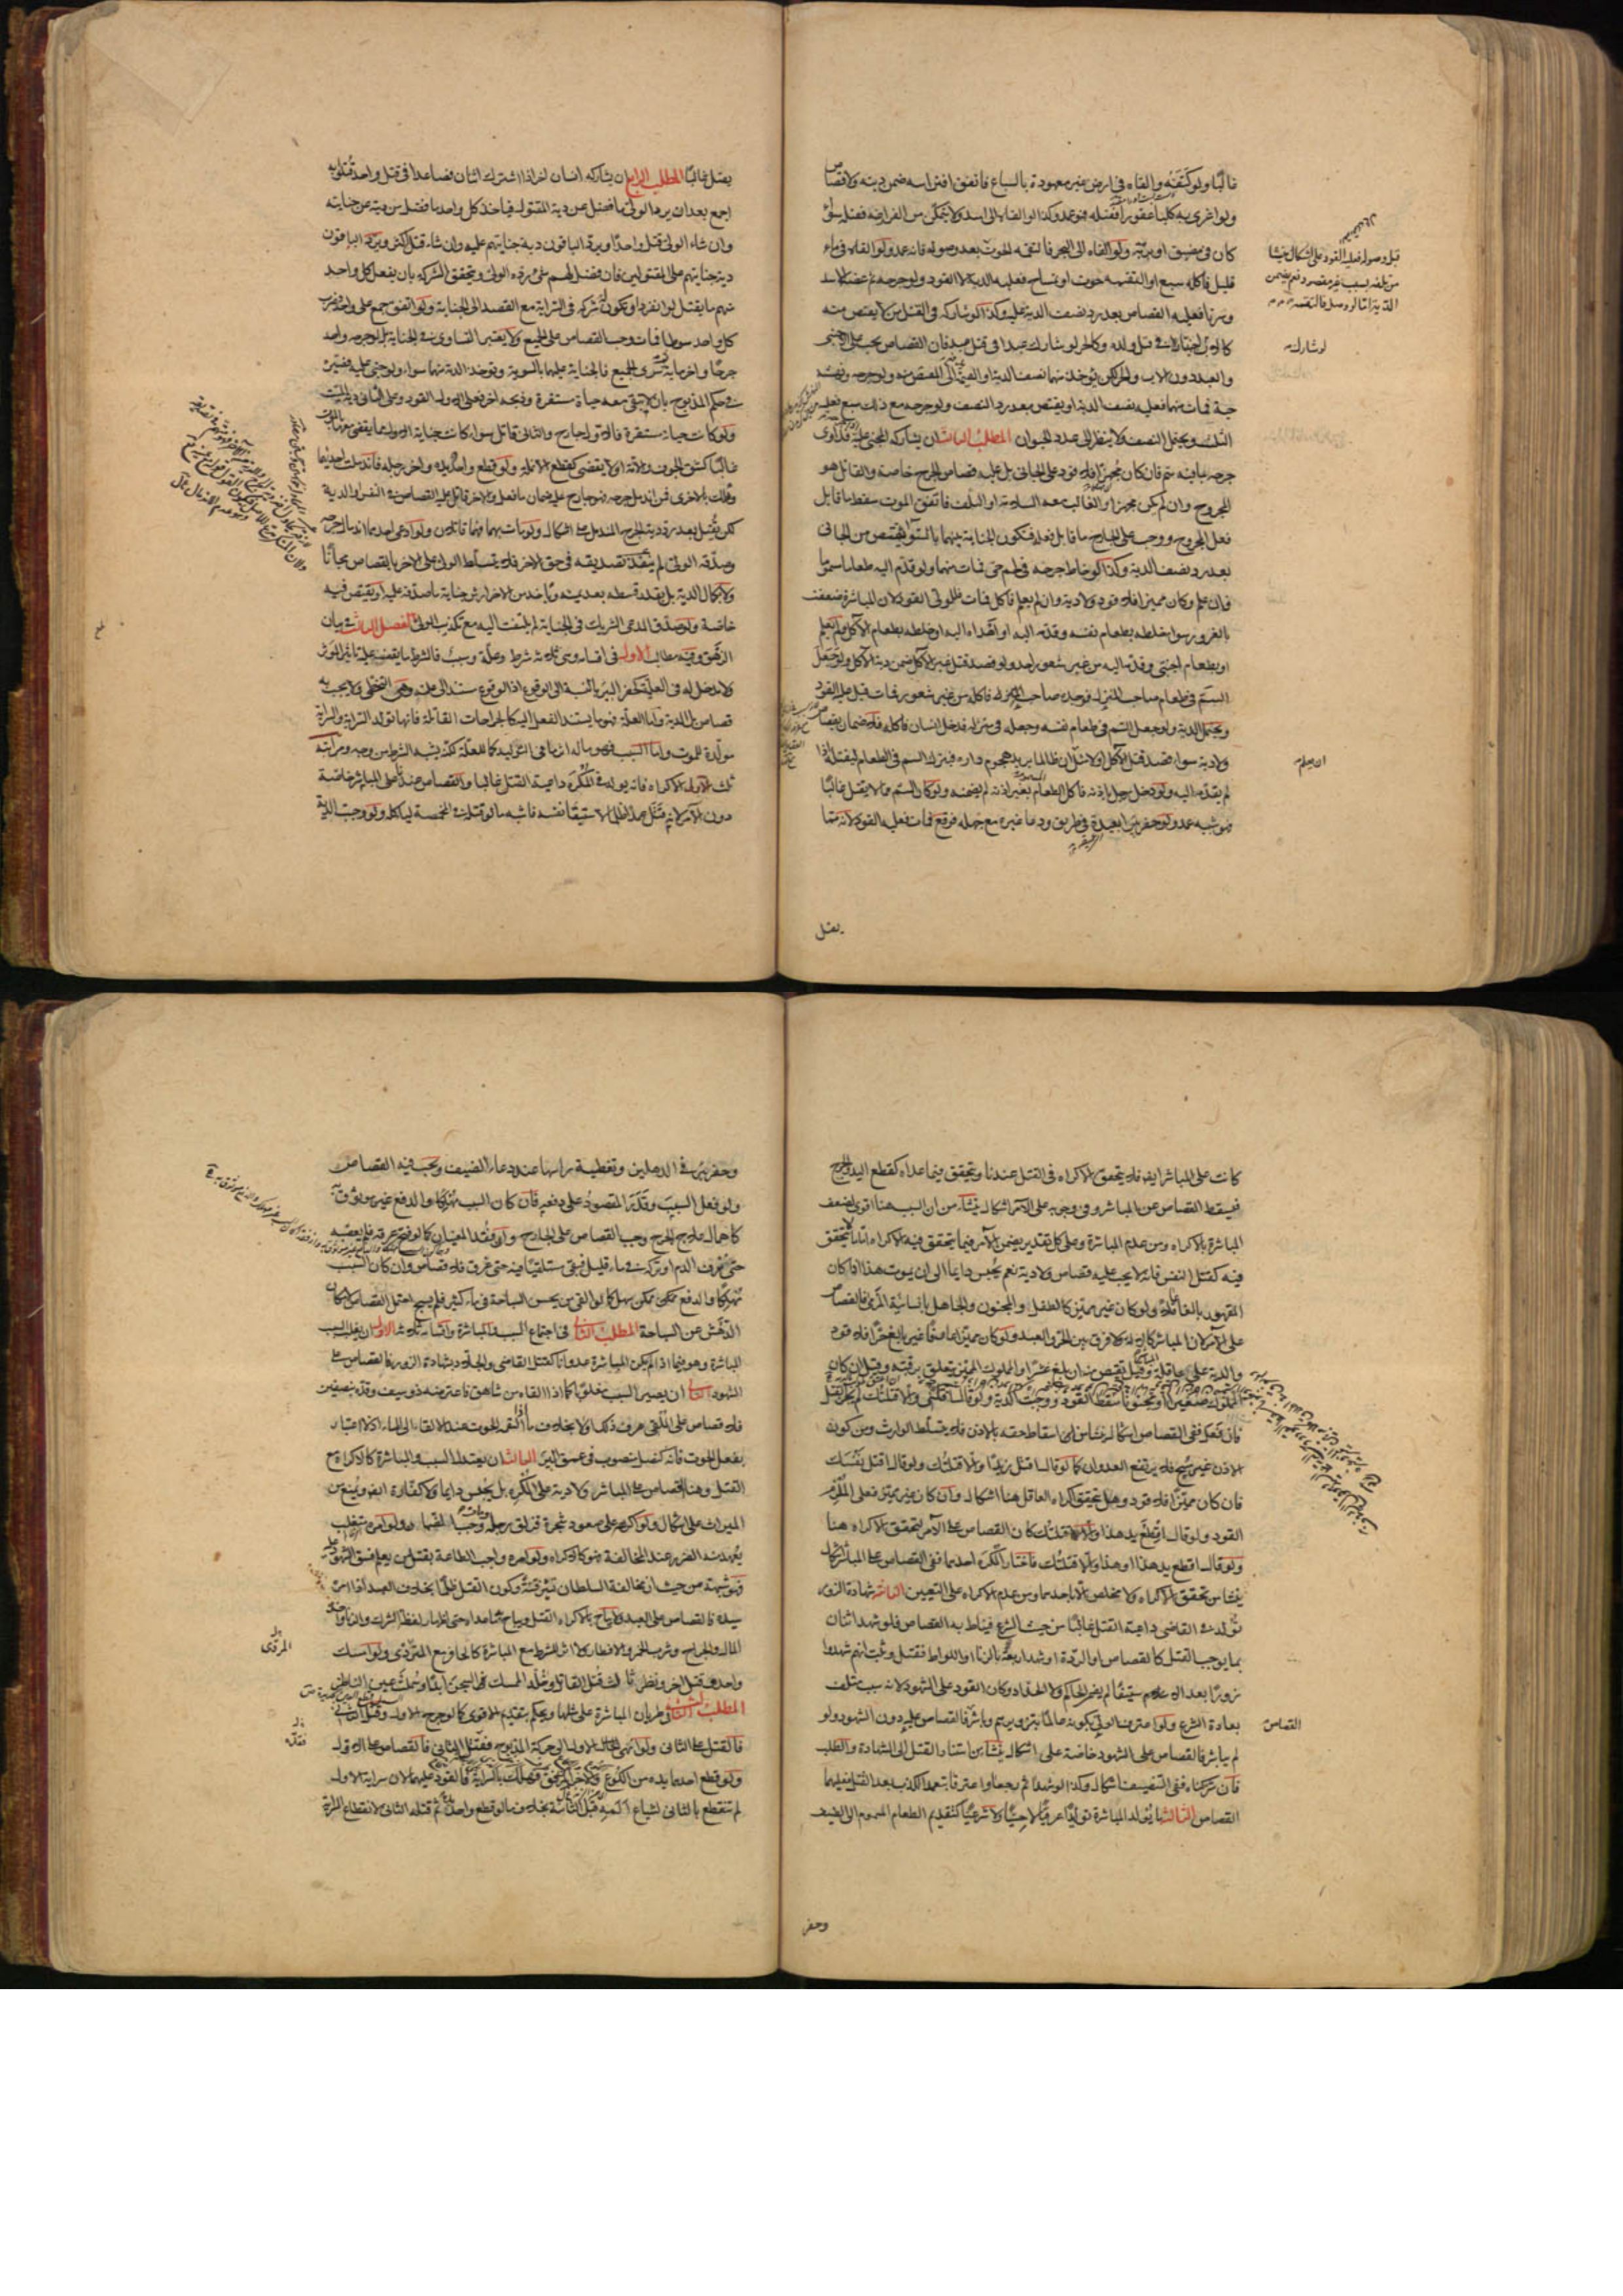 غالبًا ولو كتفه والقاه فى ارض غير معهودة بالسباع فاتفق افتراسه ضمن ديته ولا قصاص
ولو اغرى به كلبا عقورا فقتله فهو عمد وكذا لو القاه الى اسد ولا يتمكن من الفرار منه فقتله سواء
كان فى مضيق او برية ولو القاه الى البحر فالتقمه الحوت بعد وصوله فانه عمد ولو القاه فى ماء
قليل فاكله سبع او التقمه حوت او تمساح فعليه الدية لا القود ولو جرحه ثم عضه الاسد
وسرتا فعليه القصاص بعد رد نصف الدية عليه وكذا لو شاركه فى القتل من لا يقتص منه
كالاب لو شارك اجنبيا فى قتل ولده وكالحر لو شارك عبدا فى قتل عبد فان القصاص يجب على الاجنبى
والعبد دون الاب والحر لكن يؤخذ منهما نصف الدية او القيمة الى المقتص منه ولو جرحه ونهشه
حية فمات منهما فعليه نصف الدية او يقتص بعد رد النصف ولو جرحه مع ذلك سبع فعليه
الثلث ويحتمل النصف فلا ينظر الى عدد الحيوان المطلب الثالث ان يشاركه المجنى عليه فلو داوى
جرحه بما فيه سم فان كان مجهزا فلا قود على الجانى بل عليه قصاص الجرح خاصة والقاتل هو
المجروح وان لم يكن مجهزا والغالب معه السلامة او التلف فاتفق الموت سقط ما قابل
فعل المجروح ووجب على الجارح ما قابل فعله فتكون الجناية بينهما بالسواء يقتص من الجانى
بعد رد نصف الدية وكذا لو خاط جرحه فى لحم حى فمات منهما ولو قدم اليه طعاما مسموما
فان علم وكان مميزا فلا قود ولا دية وان لم يعلم فاكل فمات فللولى القود لان المباشرة ضعفت
بالغرور سواء خلطه بطعام نفسه وقدمه اليه او اهداه اليه او خلطه بطعام الآكل ولم يعلم
او بطعام اجنبى وقدمه اليه من غير شعور احد ولو قصد قتل غير الآكل ضمن دية الآكل ولو جعل
السم فى طعام صاحب المنزل فوجده صاحب المنزل فاكله من غير شعور فمات قيل عليه القود
ويحتمل الدية ولو جعل السم فى طعام نفسه وجعله فى منزله فدخل انسان فاكله فلا ضمان بقصاص
ولا دية سواء قصد قتل الآكل او لا مثل ان ظالما يريد هجوم داره فيترك السم فى الطعام ليقتله اذا
لم يقدمه اليه ولو دخل رجل باذنه فاكل الطعام بغير اذنه لم يضمنه ولو كان السم مما لا يقتل غالبًا
فهو شبه عمد ولو حفر بئرا بعيدة فى طريق ودعا غيره مع جهله فوقع فمات فعليه القود لانه مما
يقتل
قبل وصوله فعليه القود على اشكال ينشا
من تلفه بسبب غير مقصود نعم يضمن
الدية اما لو وصل فالتقمه
لو شارك
ان يعلم
يقتل غالبًا المطلب الرابع ان يشاركه انسان آخر اذا اشترك اثنان فصاعدا فى قتل واحد قتلوا به
اجمع بعد ان يرد الولى ما فضل عن دية المقتول فياخذ كل واحد ما فضل من ديته عن جنايته
وان شاء الولى قتل واحدًا ويرد الباقون دية جنايتهم عليه وان شاء قتل اكثر ويرد الباقون
دية جنايتهم على المقتولين فان فضل لهم شىء رده الولى ويتحقق الشركة بان يفعل كل واحد
منهم ما يقتل لو انفرد او يكون له شركة فى السراية مع القصد الى الجناية ولو اتفق جمع على واحد فضرب
كل واحد سوطا فمات وجب القصاص على الجميع ولا يعتبر التساوى فى الجناية بل لو جرحه واحد
جرحًا واخر مائة ثم سرى الجميع فالجناية عليهما بالسوية وتوخذ الدية منهما سواء ولو جنى عليه فصيره
فى حكم المذبوح بان لا تبقى معه حياة مستقرة وذبحه آخر فعلى الاول القود وعلى الثانى دية الميت
ولو كانت حياته مستقرة فالاول جارح والثانى قاتل سواء كانت جناية الاول مما يقضى معها بالموت
غالبًا كشق الجوف والآمة او لا يقضى كقطع الانملة ولو قطع واحد يده وآخر رجله فاندملت احديهما
وهلك بالاخرى فمن اندمل جرحه فهو جارح عليه ضمان ما فعل والاخر قاتل عليه القصاص فى النفس او الدية
لكن يقتل بعد رد دية الجرح المندمل على اشكال ولو مات بهما فهما قاتلان ولو ادعى احدهما اندمال جرحه
وصدقه الولى لم ينفذ تصديقه فى حق الاخر فلا يتسلط الولى على الاخر بالقصاص مجانًا
ولا بكمال الدية بل بقدر قسطه بعد يمينه وياخذ من الاخر ارش جناية ما صدقه عليه او يقتص فيه
خاصة ولو صدق المدعى الشريك فى الجناية لم يلتفت اليه مع تكذيب الولى الفصل الثالث فى بيان
الزهق وفيه مطالب الاول فى اقسامه وهى ثلاثة شرط وعلة وسبب فالشرط ما يقف عليه تاثير المؤثر
ولا مدخل له فى العلية كحفر البئر بالنسبة الى الوقوع اذ الوقوع مستند الى علته وهى التخطى ولا يجب به
قصاص بل الدية واما العلة فهو ما يستند الفعل اليه كالجراحات القاتلة فانها تولد السراية والسراية
مولدة للموت واما السبب فهو ما له اثر ما فى التوليد كما للعلة لكنه يشبه الشرط من وجه ومراتبه
ثلث الاول الاكراه فانه يولد فى المكره داعية القتل غالبا والقصاص عندنا على المباشر خاصة
دون الآمر لانه قتل عمدا ظلما لاستبقاء نفسه فاشبه ما لو قتله فى المخمصة لياكله ولو وجبت الدية
كانت على المباشر ايضا فلا يتحقق الاكراه فى القتل عندنا ويتحقق فيما عداه كقطع اليد والجرح
فيسقط القصاص عن المباشر وفى وجوبه على الآمر اشكال ينشأ من ان السبب هنا اقوى لضعف
المباشرة بالاكراه ومن عدم المباشرة وعلى كل تقدير يضمن الآمر فيما يتحقق فيه الاكراه اما ما لا يتحقق
فيه كقتل النفس فانه لا يجب عليه قصاص ولا دية نعم يحبس دايما الى ان يموت هذا اذا كان
المقهور بالغا عاقلا ولو كان غير مميز كالطفل والمجنون والجاهل بانسانية المرمى فالقصاص
على الآمر لان المباشر كالآلة ولا فرق بين الحر والعبد ولو كان مميزا عارفا غير بالغ حرا فلا قود
والدية على عاقلة المباشر وقيل يقتص منه ان بلغ عشرا والمملوك المميز يتعلق برقبته وقيل ان كان
المملوك صغيرا او مجنونًا سقط القود ووجبت الدية ولو قال اقتلنى والا قتلتك لم يجز القتل
فان فعل ففى القصاص اشكال ينشا من اسقاط حقه بالاذن فلا يتسلط الوارث ومن كون
الاذن غير مبيح فلا يرتفع العدوان كما لو قال اقتل زيدًا والا قتلتك ولو قال اقتل نفسك
فان كان مميزًا فلا قود وهل يتحقق اكراه العاقل هنا اشكال وان كان غير مميز فعلى الملزم
القود ولو قال اقطع يد هذا والا قتلتك كان القصاص على الآمر لتحقق الاكراه هنا
ولو قال اقطع يد هذا او هذا والا قتلتك فاختار المكره احدهما ففى القصاص على المباشر اشكال
ينشا من تحقق الاكراه ولا مخلص الا باحدهما ومن عدم الاكراه على التعيين الثانى شهادة الزور
تولد فى القاضى داعية القتل غالبًا من حيث الشرع فيناط به القصاص فلو شهد اثنان
بما يوجب القتل كالقصاص او الردة او شهد اربعة بالزنا او اللواط فقتل وثبت انهم شهدوا
زورًا بعد القتل لم يضمن الحاكم ولا الحداد وكان القود على الشهود لانه سبب متلف
بعادة الشرع ولو اعترف الولى بكونه عالمًا بتزويرهم وباشر فالقصاص عليه دون الشهود ولو
لم يباشر فالقصاص على الشهود خاصة على اشكال ينشا من استناد القتل الى الشهادة والطلب
فان شركناه ففى التنصيف اشكال وكذا لو شهدا ثم رجعا واعترفا بتعمد الكذب بعد القتل فعليهما
القصاص الثالث ما يولد المباشرة توليدًا عرفيًا لا حسيًا ولا شرعيًا كتقديم الطعام المسموم الى الضيف
وحفر
القصاص
وحفر بئر فى الدهليز وتغطية راسها عند دعاء الضيف ويجب فيه القصاص
ولو فعل السبب وقدر المقصود على دفعه فان كان السبب مهلكا والدفع غير موثوق به
كاهمال علاج الجرح وجب القصاص على الجارح وان فقد المعنيان كما لو فتح عرقه فلم يعصبه
حتى نزف الدم او تركه فى ماء قليل فبقى مستلقيًا فيه حتى غرق فلا قصاص وان كان السبب
مهلكًا والدفع ممكن سهل كما لو القى من يحسن السباحة فى ماء كثير فلم يسبح احتمل القصاص لامكان
الدهش عن السباحة المطلب الثانى فى اجتماع السبب والمباشرة واقسامه ثلاثة الاول ان يغلب السبب
المباشرة وهو فيما اذا لم يكن المباشرة عدوانا كقتل القاضى والجلاد بشهادة الزور فالقصاص على
الشهود الثانى ان يصير السبب مغلوبًا كما اذا القاه من شاهق فاعترضه ذو سيف وقده بنصفين
فلا قصاص على الملقى عرف ذلك او لا بخلاف ما لو التقمه الحوت عند الالقاء الى الماء اذ لا اعتبار
بفعل الحوت فانه كنصل منصوب فى عمق البئر الثالث ان يعتدل السبب والمباشرة كالاكراه مع
القتل وهنا القصاص على المباشر ولا دية على المكره بل يحبس دايما ولا كفارة ايضا ويمنع من
الميراث على اشكال ولو اكرهه على صعود شجرة فزلق رجله ومات وجب الضمان ولو امره متغلب
يعهد منه الضرر عند المخالفة فهو كالاكراه ولو امره واجب الطاعة بقتل من يعلم فسق الشهود عليه
فهو شبهة من حيث ان مخالفة السلطان تثير فتنة وكون القتل ظلمًا بخلاف العبد اذا امره
سيده فالقصاص على العبد ولا يباح بالاكراه القتل ويباح به ما عداه حتى اظهار لفظ الشرك والزنا واخذ
المال والجراح وشرب الخمر والافطار ولا اثر للشرط مع المباشرة كالحافر مع المتردى ولو امسك
واحد وقتل آخر ونظر ثالث قتل القاتل وخلد الممسك السجن ابدًا وسملت عين الناظر
المطلب الثالث فى طريان المباشرة على مثلها ويحكم بتقديم الاقوى كما لو جرح الاول وقتل الثانى
فالقتل على الثانى ولو انهى حال الاول الى حركة المذبوح فقتله الثانى فالقصاص على الاول
ولو قطع احدهما يده من الكوع والآخر من المرفق فهلك بالسراية فالقود عليهما لان سراية الاول
لم تنقطع بالثانى لشياع المه قبل الثانية بخلاف ما لو قطع واحد يده ثم قتله الثانى لانقطاع السراية
المردى